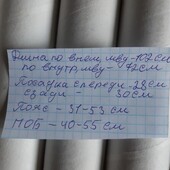 Длина по внеш.шву-102см
по внутр.шву- 72см
Посадка спереди-28см
сзади - 30см
Пояс - 51-53 см
ПОБ - 40-55 см